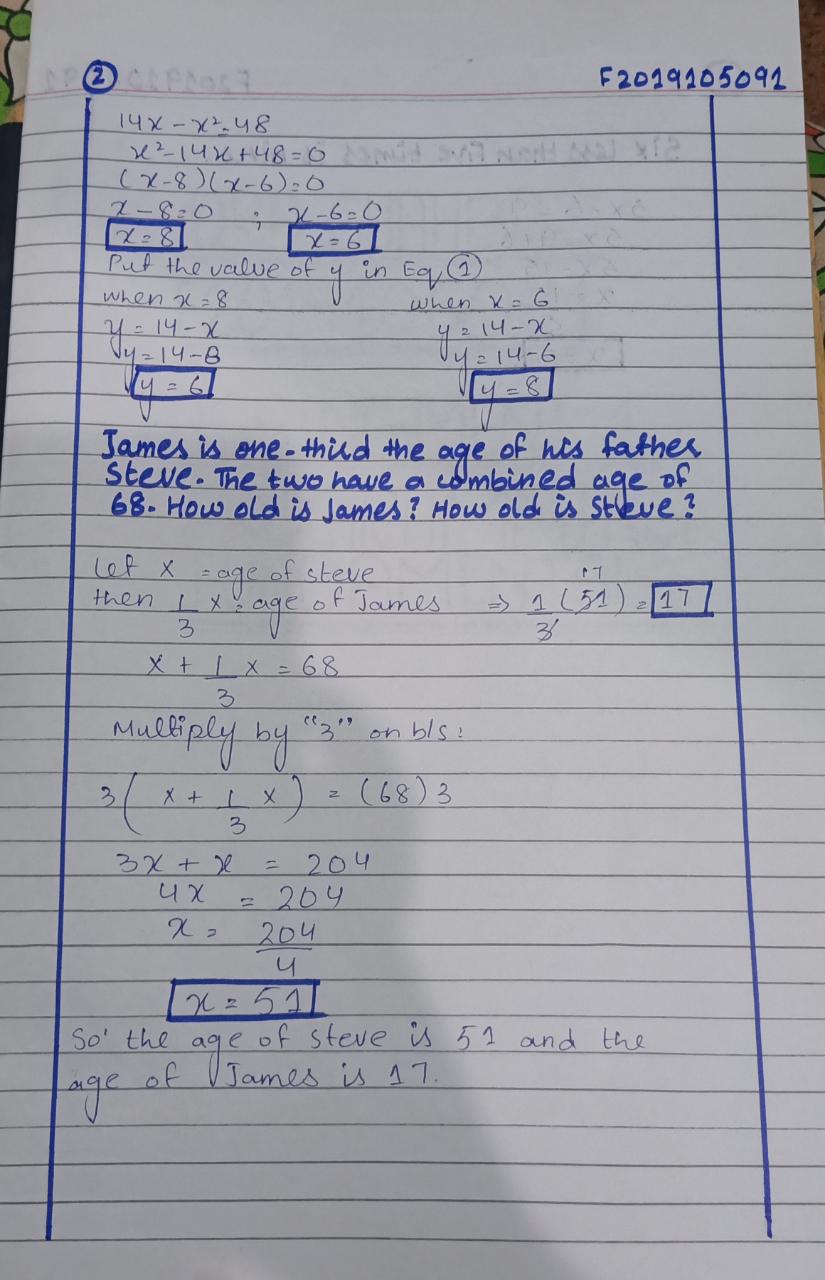 ② F2019105091
14x - x² = 48
x² - 14x + 48 = 0
(x-8)(x-6) = 0
x - 8 = 0 ; x - 6 = 0
x = 8 x = 6
Put the value of y in Eq ①
when x = 8 when x = 6
y = 14 - x y = 14 - x
y = 14 - 8 y = 14 - 6
y = 6 y = 8
James is one-third the age of his father
Steve. The two have a combined age of
68. How old is James? How old is Steve?
Let x = age of steve
then 1/3 x = age of James ⇒ 1/3 (51) 17 = 17
x + 1/3 x = 68
Multiply by "3" on b/s:
3( x + 1/3 x ) = (68) 3
3x + x = 204
4x = 204
x = 204/4
x = 51
So' the age of steve is 51 and the
age of James is 17.